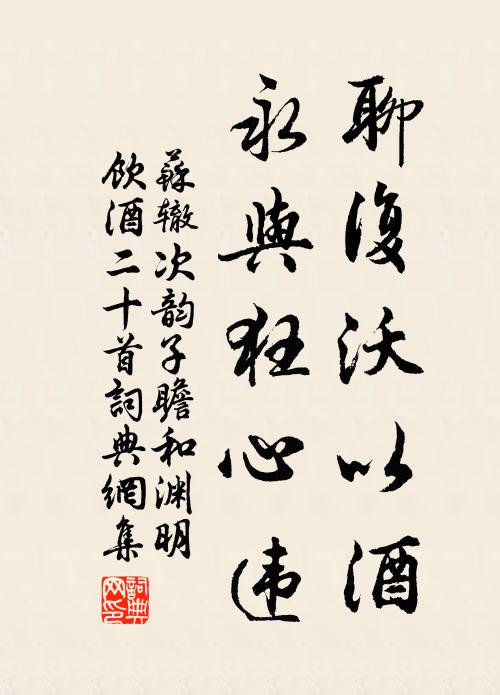 聊復沃以酒
永與狂心违
蘇辙次韵子瞻和渊明
飲酒二十首詞典網集
詞典
网印